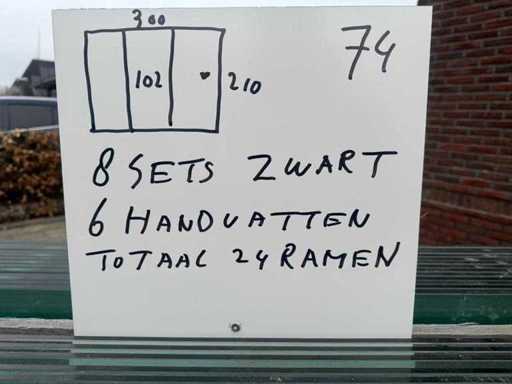 300
74
102
210
8 SETS ZWART
6 HANDVATTEN
TOTAAL 24 RAMEN